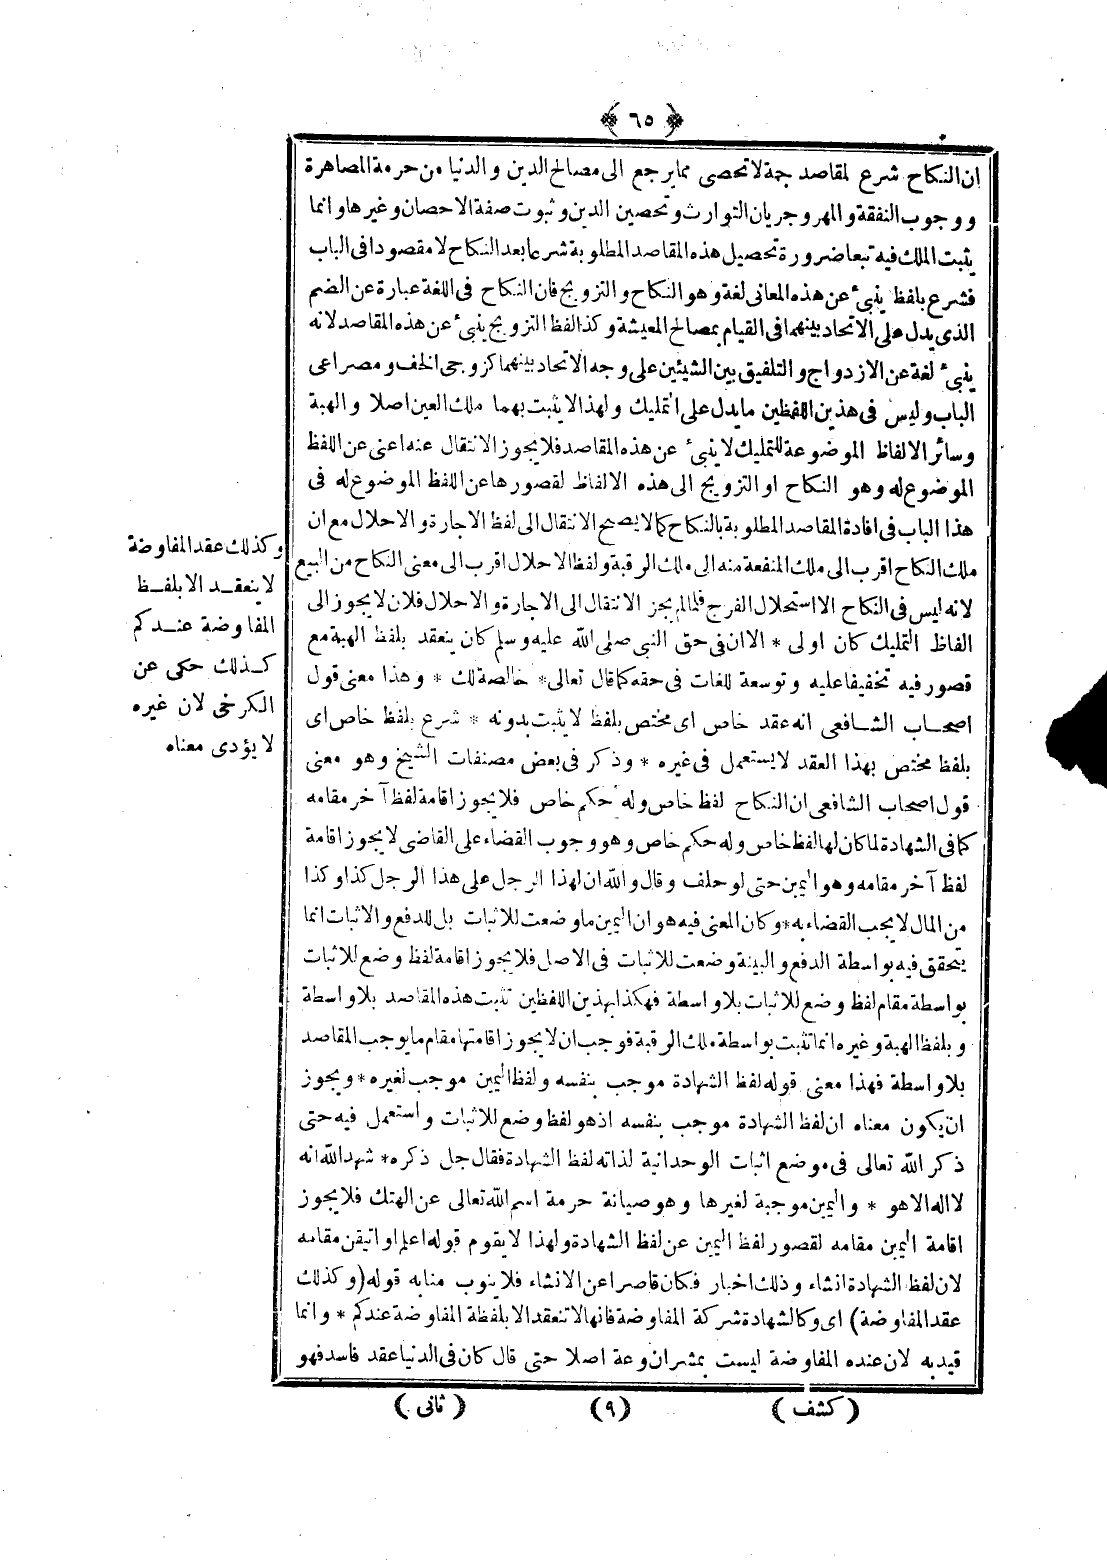 ﴿ ٦٥ ﴾
ان النكاح شرع لمقاصد جمة لا تحصى مما يرجع الى مصالح الدين والدنيا من حرمة المصاهرة
ووجوب النفقة والمهر وجريان التوارث وتحصين الدين وثبوت صفة الاحصان وغيرها وانما
يثبت الملك فيه تبعا ضرورة تحصيل هذه المقاصد المطلوبة شرعا بعد النكاح لا مقصودا فى الباب
فشرع بلفظ ينبئ عن هذه المعانى لغة وهو النكاح والتزويج فان النكاح فى اللغة عبارة عن الضم
الذى يدل على الاتحاد بينهما فى القيام بمصالح المعيشة وكذا لفظ التزويج ينبئ عن هذه المقاصد لانه
ينبئ لغة عن الازدواج والتلفيق بين الشيئين على وجه الاتحاد بينهما كزوجى الخف ومصراعى
الباب وليس فى هذين اللفظين ما يدل على التمليك ولهذا لا يثبت بهما ملك العين اصلا والهبة
وسائر الالفاظ الموضوعة للتمليك لا ينبئ عن هذه المقاصد فلا يجوز الانتقال عنه اعنى عن اللفظ
الموضوع له وهو النكاح او التزويج الى هذه الالفاظ لقصورها عن اللفظ الموضوع له فى
هذا الباب فى افادة المقاصد المطلوبة بالنكاح كما لا يصح الانتقال الى لفظ الاجارة والاحلال مع ان
ملك النكاح اقرب الى ملك المنفعة منه الى ملك الرقبة ولفظ الاحلال اقرب الى معنى النكاح من البيع
لانه ليس فى النكاح الا استحلال الفرج فلما لم يجز الانتقال الى الاجارة والاحلال فلان لا يجوز الى
الفاظ التمليك كان اولى * الا ان فى حق النبى صلى الله عليه وسلم كان ينعقد بلفظ الهبة مع
قصور فيه تخفيفا عليه وتوسعة للغات فى حقه كما قال تعالى * خالصة لك * وهذا معنى قول
اصحاب الشافعى انه عقد خاص اى مختص بلفظ لا يثبت بدونه * شرع بلفظ خاص اى
بلفظ مختص بهذا العقد لا يستعمل فى غيره * وذكر فى بعض مصنفات الشيخ وهو معنى
قول اصحاب الشافعى ان النكاح لفظ خاص وله حكم خاص فلا يجوز اقامة لفظ آخر مقامه
كما فى الشهادة لما كان لها لفظ خاص وله حكم خاص وهو وجوب القضاء على القاضى لا يجوز اقامة
لفظ آخر مقامه وهو اليمين حتى لو حلف وقال والله ان لهذا الرجل على هذا الرجل كذا وكذا
من المال لا يجب القضاء به * وكان المعنى فيه هو ان اليمين ما وضعت للاثبات بل للدفع والاثبات انما
يتحقق فيه بواسطة الدفع والبينة وضعت للاثبات فى الاصل فلا يجوز اقامة لفظ وضع للاثبات
بواسطة مقام لفظ وضع للاثبات بلا واسطة فهكذا بهذين اللفظين تثبت هذه المقاصد بلا واسطة
وبلفظ الهبة وغيره انما تثبت بواسطة ملك الرقبة فوجب ان لا يجوز اقامتها مقام ما يوجب المقاصد
بلا واسطة فهذا معنى قوله لفظ الشهادة موجب بنفسه ولفظ اليمين موجب لغيره * ويجوز
ان يكون معناه ان لفظ الشهادة موجب بنفسه اذ هو لفظ وضع للاثبات واستعمل فيه حتى
ذكر الله تعالى فى موضع اثبات الوحدانية لذاته لفظ الشهادة فقال جل ذكره * شهد الله انه
لا اله الا هو * واليمين موجبة لغيرها وهو صيانة حرمة اسم الله تعالى عن الهتك فلا يجوز
اقامة اليمين مقامه لقصور لفظ اليمين عن لفظ الشهادة ولهذا لا يقوم قوله اعلم او اتيقن مقامه
لان لفظ الشهادة انشاء وذلك اخبار فكان قاصرا عن الانشاء فلا ينوب منابه قوله (وكذلك
عقد المفاوضة) اى وكالشهادة شركة المفاوضة فانها لا تنعقد الا بلفظة المفاوضة عندكم * وانما
قيد به لان عنده المفاوضة ليست بمشروعة اصلا حتى قال كان فى الدنيا عقد فاسد فهو
وكذلك عقد المفاوضة
لا ينعقد الا بلفظ
المفاوضة عندكم
كذلك حكى عن
الكرخى لان غيره
لا يؤدى معناه
(كشف) (٩) (ثانى)